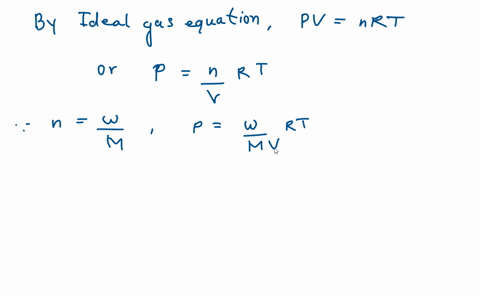 By Ideal gas equation, PV = nRT
or P = n/V RT
∵ n = w/M , P = w/MV RT